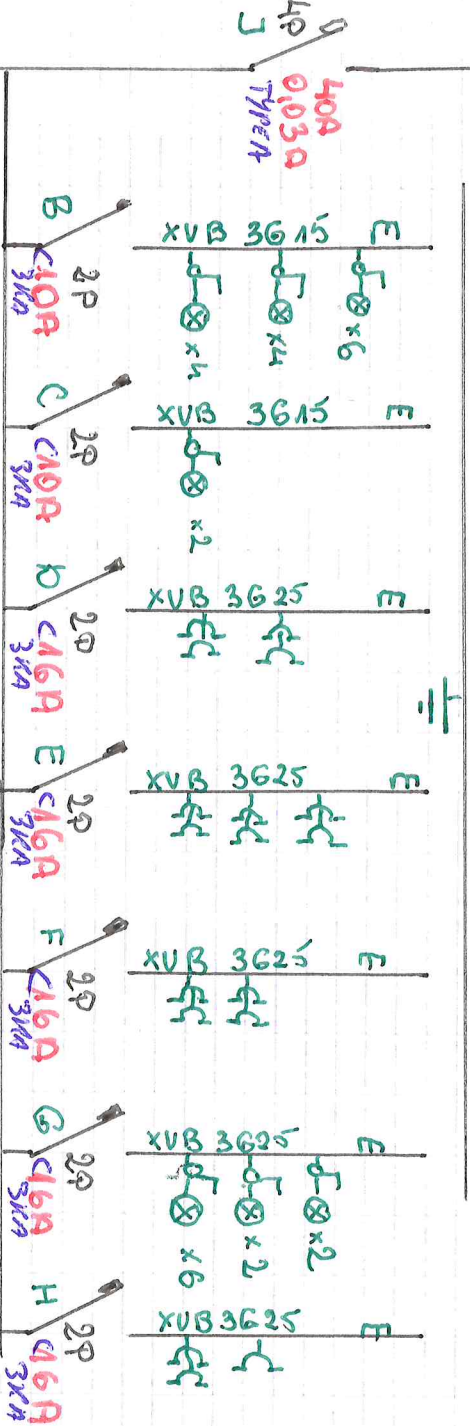 J
4P
40A
0,03A
TYPE A
B
2P
C10A
3KA
XVB 3G15
E
x4
x4
x6
C
2P
C10A
3KA
XVB 3G15
E
x2
D
2P
C16A
3KA
XVB 3G25
E
E
2P
C16A
3KA
XVB 3G25
E
F
2P
C16A
3KA
XVB 3G25
E
G
2P
C16A
3KA
XVB 3G25
E
x6
x2
x2
H
2P
C16A
3KA
XVB 3G25
E